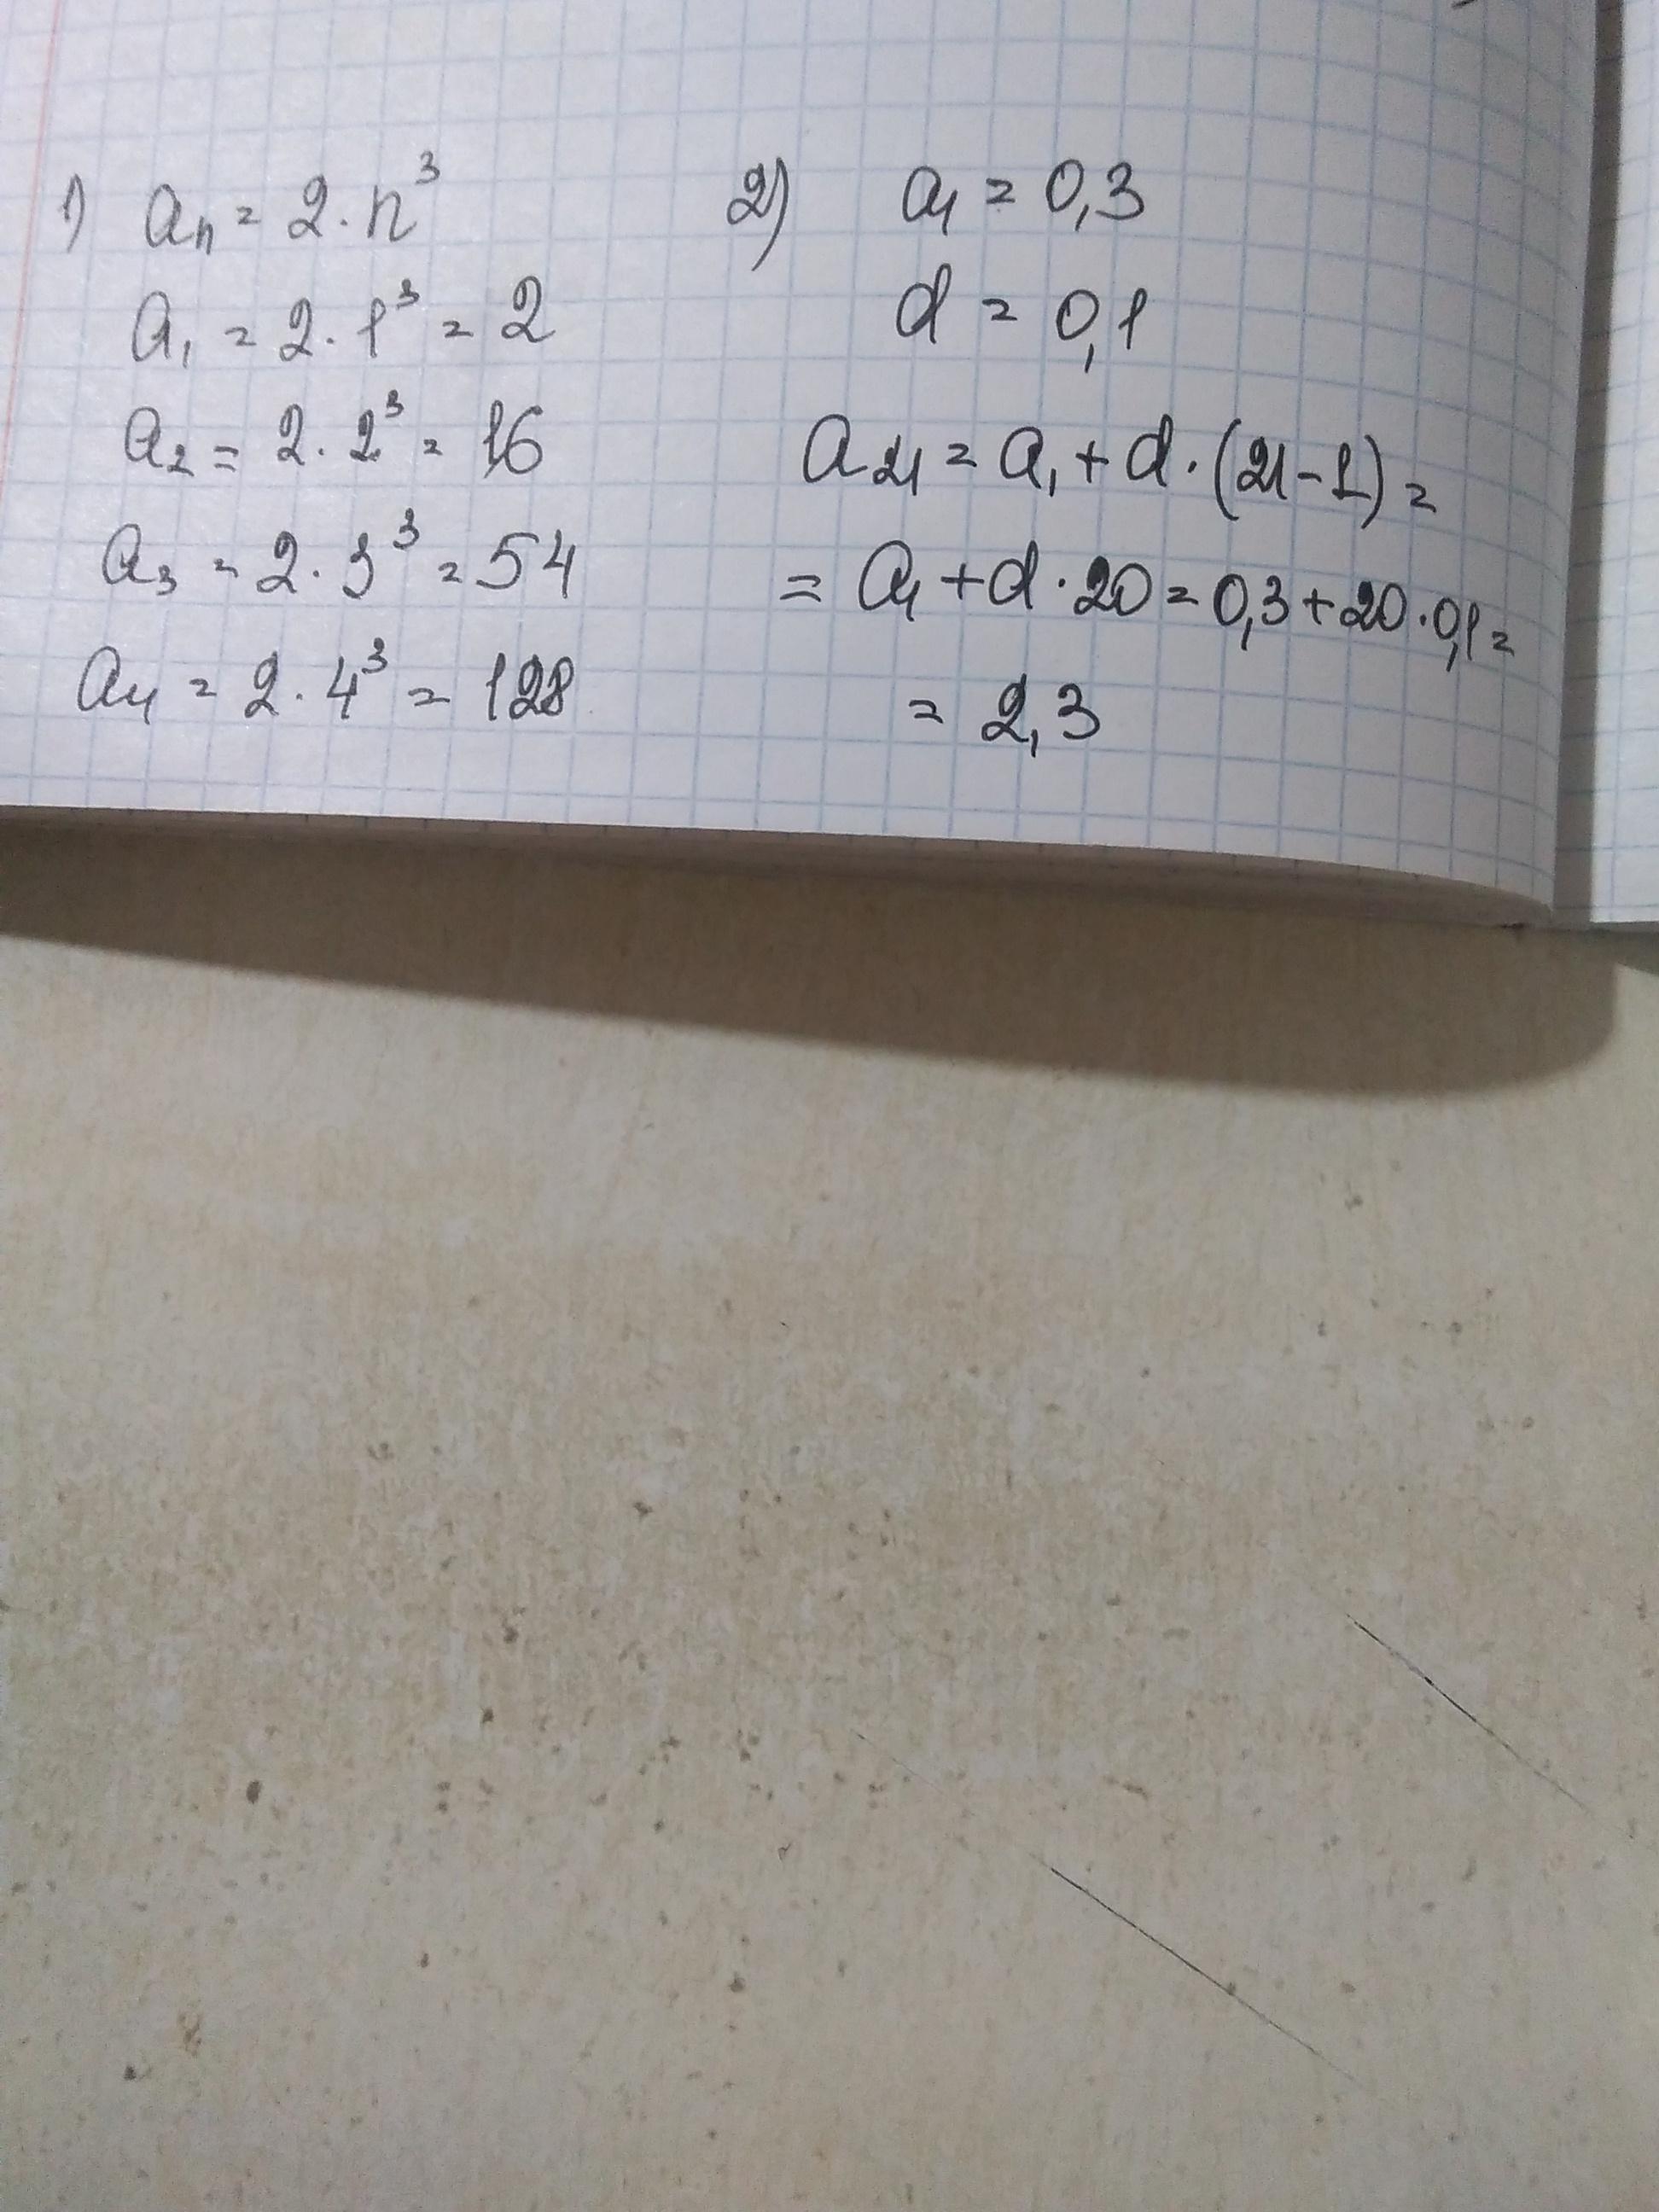 1) aₙ = 2 · n³
a₁ = 2 · 1³ = 2
a₂ = 2 · 2³ = 16
a₃ = 2 · 3³ = 54
a₄ = 2 · 4³ = 128
2) a₁ = 0,3
d = 0,1
a₂₁ = a₁ + d · (21 - 1) =
= a₁ + d · 20 = 0,3 + 20 · 0,1 =
= 2,3